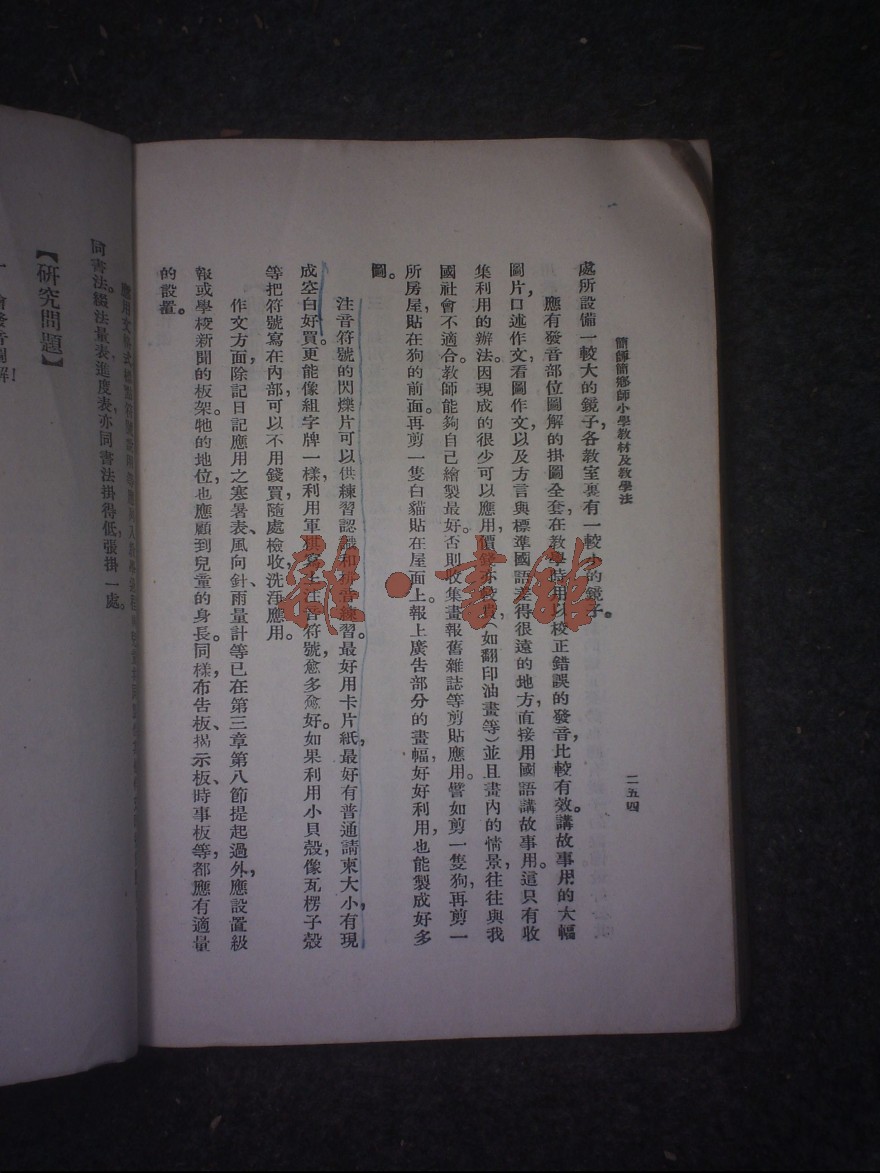 簡師簡鄉師小學教材及教學法
二五四
處所設備一較大的鏡子，各教室裏有一較小的鏡子。
應有發音部位圖解的掛圖全套，在教學時用以校正錯誤的發音，比較有效。講故事用的大幅
圖片，口述作文看圖作文，以及方言與標準國語差得很遠的地方，直接用國語講故事用。這只有收
集利用的辦法。因現成的很少可以應用，價錢亦較貴（如翻印油畫等）並且畫內的情景，往往與我
國社會不適合。教師能夠自己繪製最好。否則收集畫報舊雜誌等剪貼應用。譬如剪一隻狗，再剪一
所房屋貼在狗的前面。再剪一隻白貓貼在屋面上。報上廣告部分的畫幅，好好利用，也能製成好多
圖。
注音符號的閃爍片可以供練習認識和拼音練習。最好用卡片紙，最好有普通請柬大小，有現
成空白好買。更能像組字牌一樣，利用軍棋寫上注音符號，愈多愈好。如果利用小貝殼，像瓦楞子殼
等把符號寫在內部，可以不用錢買，隨處檢收洗淨應用。
作文方面，除記日記應用之寒暑表、風向針、雨量計等已在第三章第八節提起過外，應設置級
報或學校新聞的板架。牠的地位，也應顧到兒童的身長。同樣，布告板、揭示板、時事板等，都應有適量
的設置。
同書法綴法量表，進度表，亦同書法掛得低，張掛一處。
【研究問題】
雜·書館